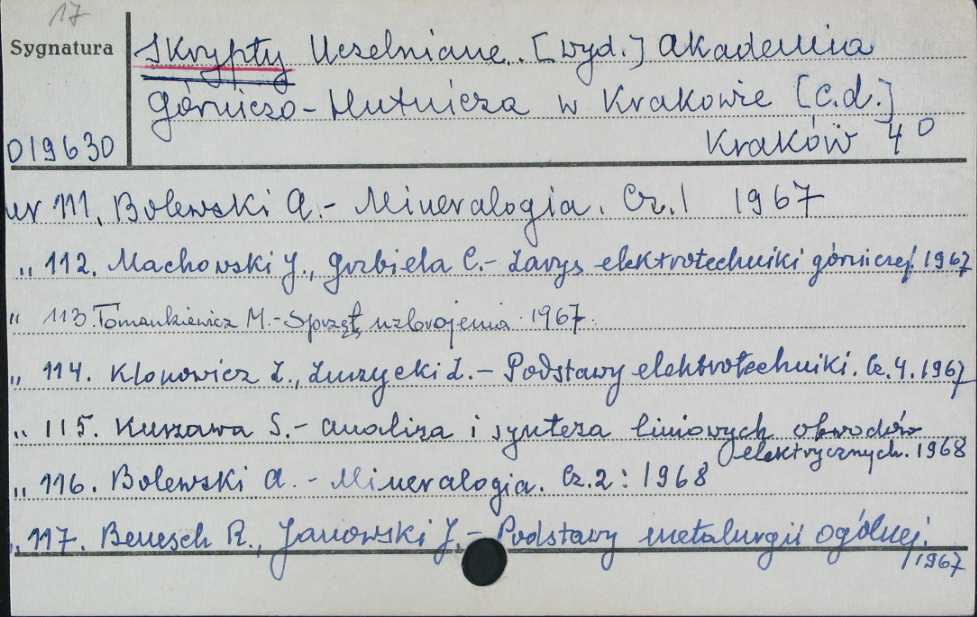 17
Sygnatura
Skrypty Uczelniane. [wyd.] Akademia
Górniczo-Hutnicza w Krakowie [c.d.]
019630
Kraków 4°
nr 111. Bolewski A.- Mineralogia. Cz.1 1967
„ 112. Machowski J., Gorbiela C.- Zarys elektrotechniki górniczej 1967
„ 113. Tomankiewicz M.- Sprzęt uzbrojenia 1967.
„ 114. Klonowicz Z., Zurzycki Z.- Podstawy elektrotechniki. Cz.4. 1967
„ 115. Kurzawa S.- Analiza i synteza liniowych obwodów
elektrycznych. 1968
„ 116. Bolewski A. - Mineralogia. Cz.2: 1968
„ 117. Benesch R., Janowski J.- Podstawy metalurgii ogólnej.
1967